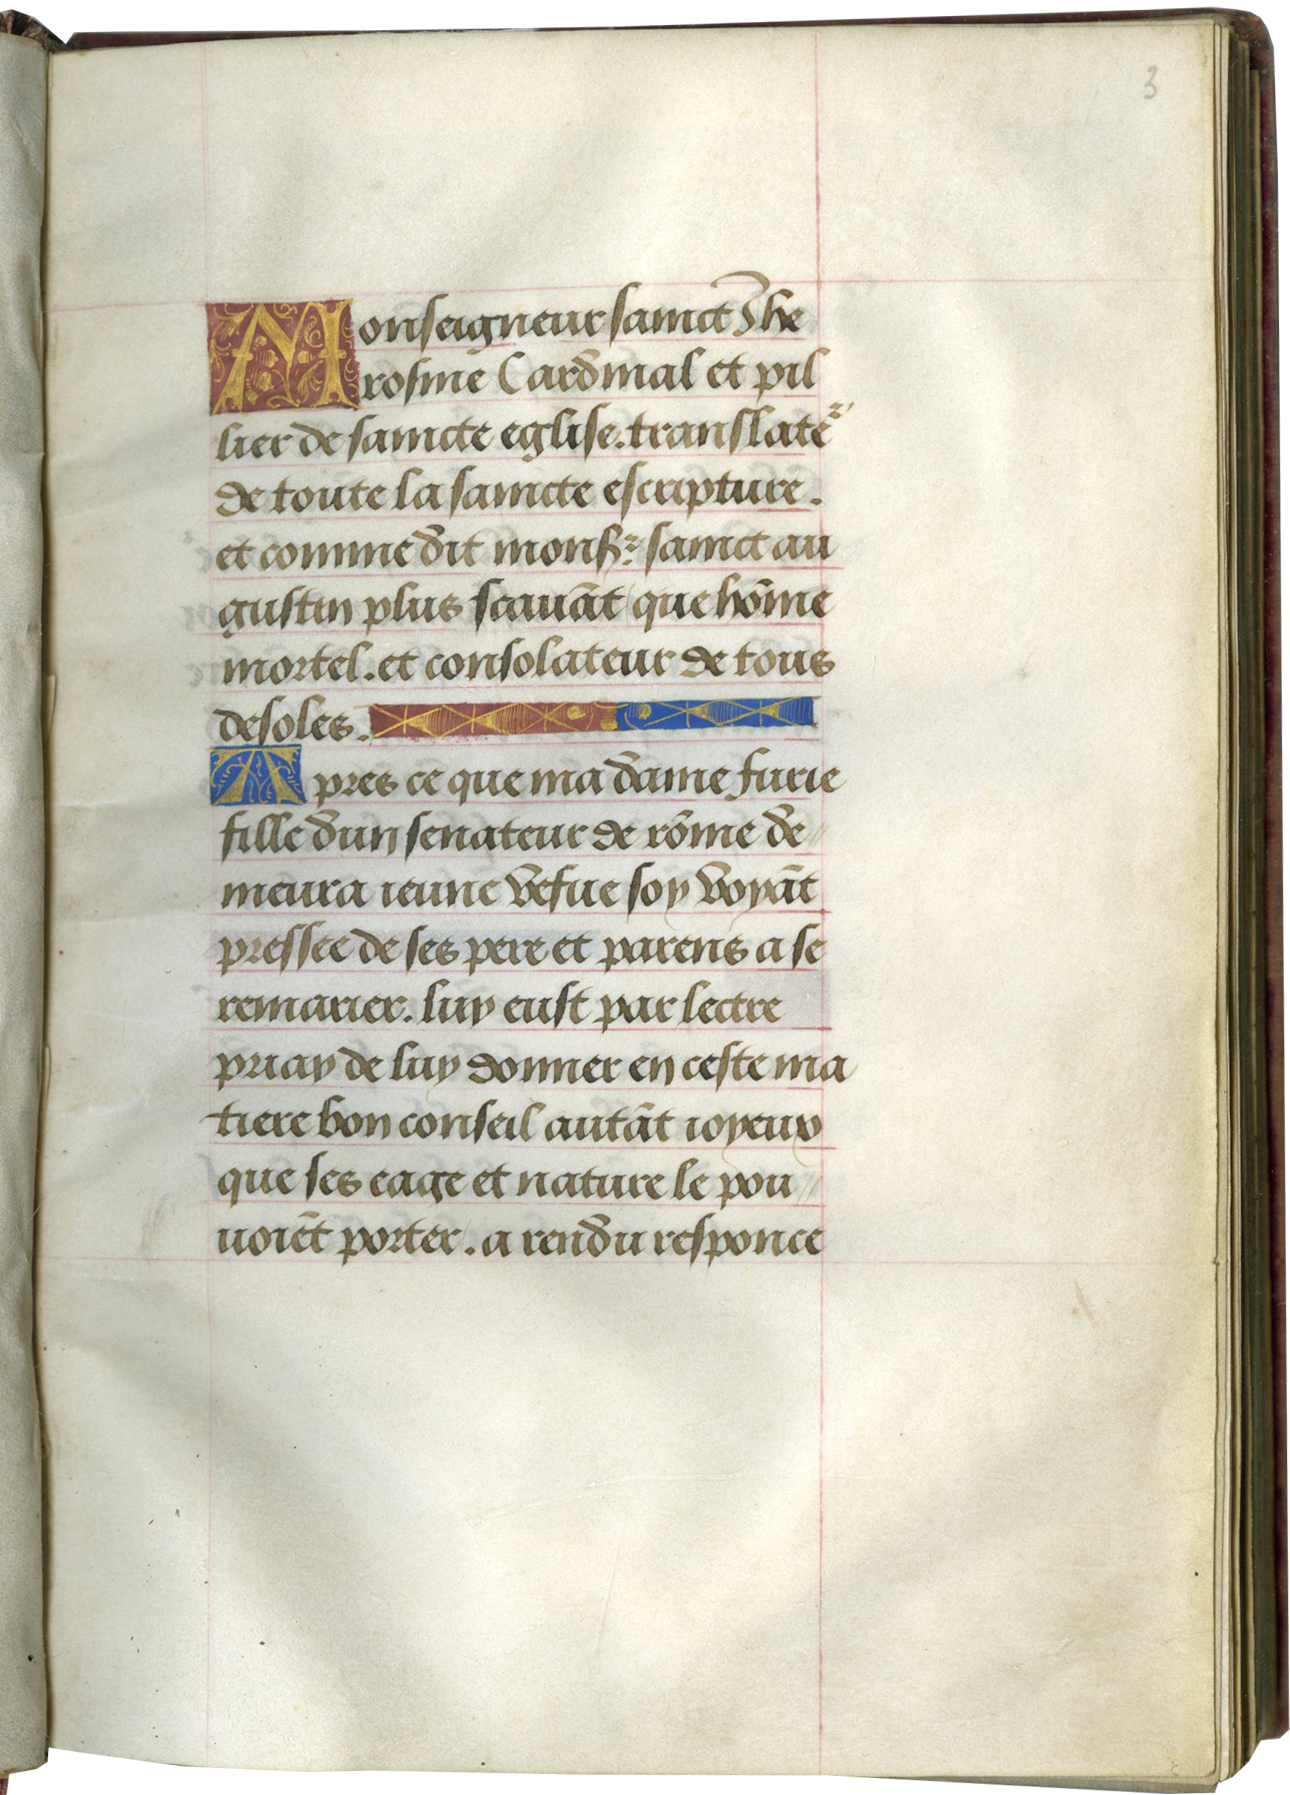 3
Monseigneur sainct Jhe
rosme Cardinal et pil
lier de saincte eglise. translate᷑
de toute la saincte escripture.
et comme dit monsr. sainct au
gustin plus scauāt que hōme
mortel. et consolateur de tous
desoles.
Apres ce que ma dame furie
fille dun senateur de rōme de//
meura ieune vefue soy voyāt
pressee de ses pere et parens a se
remarier. luy eust par lectre
priay de luy donner en ceste ma
tiere bon conseil autāt ioyeux
que ses eage et nature le pou//
uoiēt porter. a rendu responce